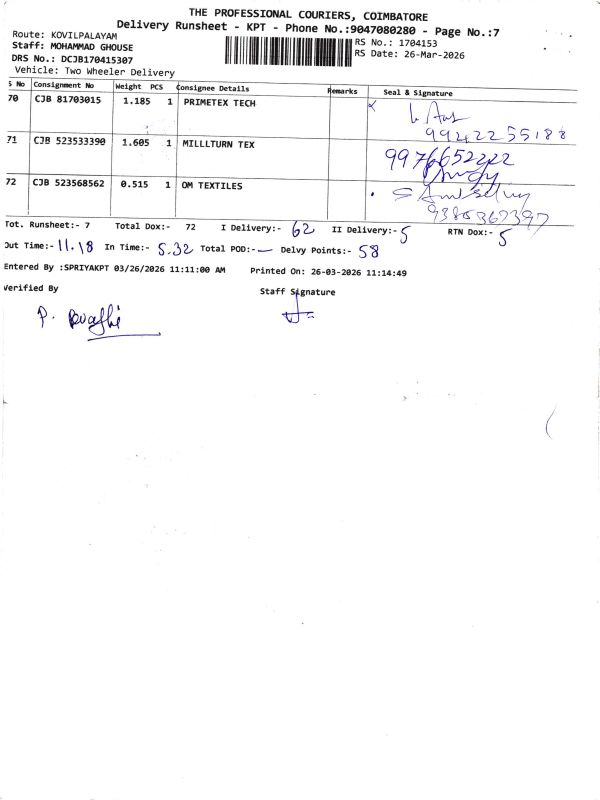 THE PROFESSIONAL COURIERS, COIMBATORE
Delivery Runsheet - KPT - Phone No.:9047080280 - Page No.:7
Route: KOVILPALAYAM
RS No.: 1704153
Staff: MOHAMMAD GHOUSE
RS Date: 26-Mar-2026
DRS No.: DCJB170415307
Vehicle: Two Wheeler Delivery
S No Consignment No Weight PCS Consignee Details Remarks Seal & Signature
70 CJB 81703015 1.185 1 PRIMETEX TECH
99422 55188
71 CJB 523533390 1.605 1 MILLLTURN TEX
9976652222
72 CJB 523568562 0.515 1 OM TEXTILES
9385367397
Tot. Runsheet:- 7 Total Dox:- 72 I Delivery:- 62 II Delivery:- 5 RTN Dox:- 5
Out Time:- 11.18 In Time:- 5.32 Total POD:- — Delvy Points:- 58
Entered By :SPRIYAKPT 03/26/2026 11:11:00 AM Printed On: 26-03-2026 11:14:49
Verified By Staff Signature
P.